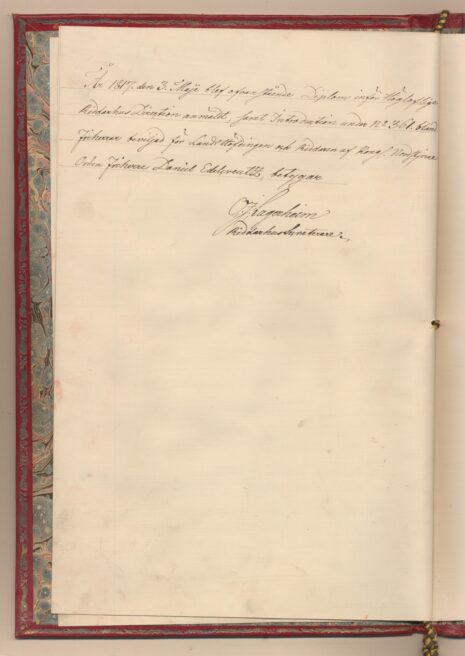 År 1817. den 3. Maji blef ofvanstående Diplom inför Högloflige
Riddarhus Direction anmäldt, samt Introduction under N:o 361. bland
Friherrar beviljad för Landshöfdingen och Riddaren af Kongl. Nordstjerne
Orden Friherre Daniel Edelcreutz, betygar
Lagerheim
Riddarhus Secreterare.